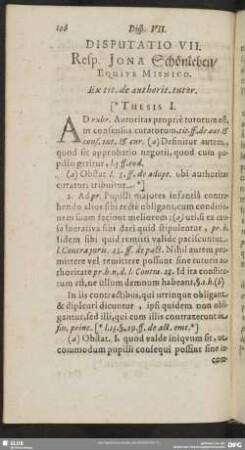 108 Diss. VII.
DISPUTATIO VII.
Resp. JONA Schönleben/
EQUITE MISNICO.
Ex tit. de authorit. tutor.
[* THESIS I.
AD rubr. Autoritas propriè tutorum est,
ut consensus curatorum. tit. ff. de aut. &
cons. tut. & cur. (a) Definitur autem,
quod sit approbatio negotii, quod cum pu-
pillo geritur, l. 3. ff. eod.
(a) Obstat l. 3. ff. de adopt. ubi authoritas
curatori tribuitur. *]
2. Ad pr. Pupilli majores infantiâ contra-
hendo alios sibi rectè obligant, cum conditio-
nem suam faciant meliorem: (a) uti si ex cau-
sa lucrativa dari quid stipulentur, pr. h.
Idem sibi quid remitti validè paciscuntur,
l. Contra juris. 28. ff. de pact. Nihil autem pro-
mittere vel remittere possunt sine tutoris au-
thoritate pr. h. n. d. l. Contra. 28. Id ita constitu-
tum est, ne ullum damnum habeant, §. 1. h. (b)
In iis contractibus, qui utrinque obligant,
& dipleuri dicuntur, ipsi quidem non obli-
gantur, sed illi, qui cum illis contraxerunt
princ. [* l. 13. §. 29. ff. de act. emt. *]
(a) Obstat. I. quod valde iniquum sit,
commodum pupilli consequi possint sine
com-